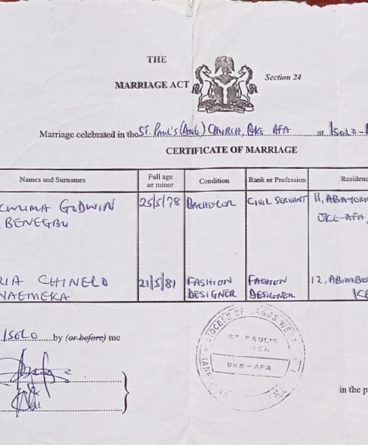 THE
MARRIAGE ACT
Section 24
Marriage celebrated in the ST. Paul's (Ang.) CHURCH, OKE AFA at ISOLO
CERTIFICATE OF MARRIAGE
Names and Surnames Full age or minor Condition Rank or Profession Residence
GODWIN 25/5/78 BACHELOR CIVIL SERVANT 11,
BENEGBU OKE-AFA,
RIA CHINELO 21/5/81 FASHION DESIGNER FASHION DESIGNER 12,
NAEMEKA
ISOLO by (or before) me
DIOCESE OF LAGOS WEST
ST PAUL'S
OKE-AFA
in the p